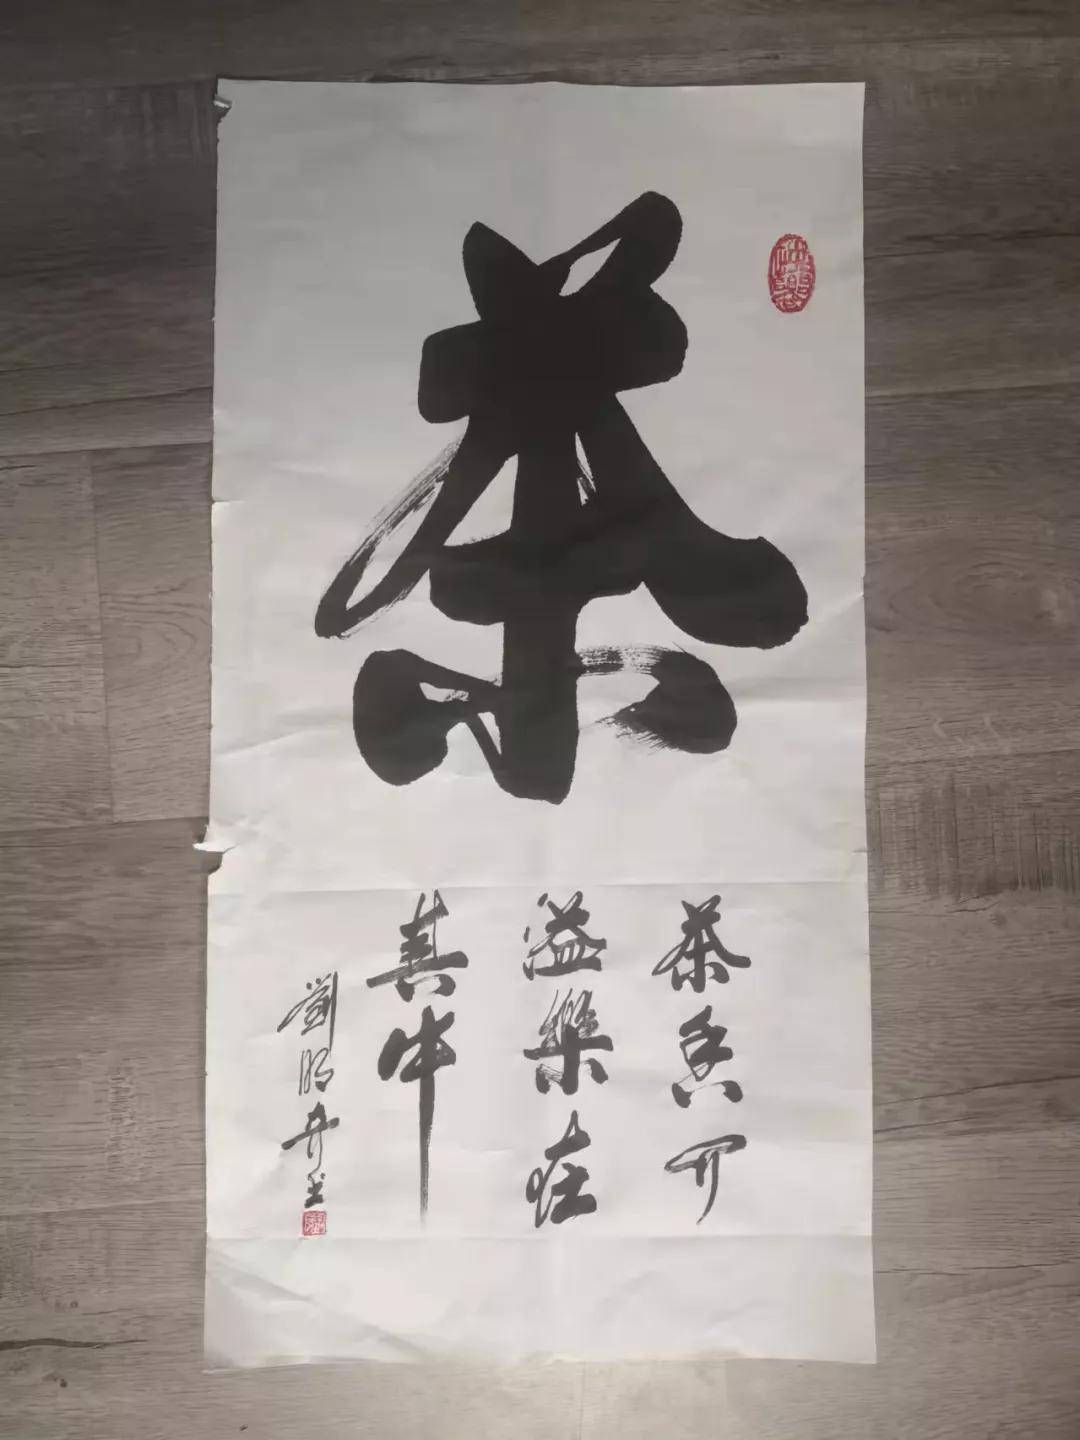 茶
茶香
溢樂在
其中
劉明
书